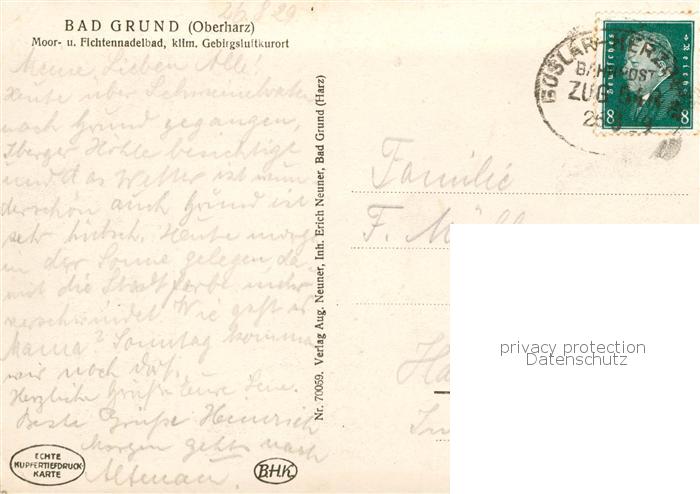 26.8.29
BAD GRUND (Oberharz)
Moor- u. Fichtennadelbad, klim. Gebirgsluftkurort
Meine Lieben Alle!
Heute über
nach Grund gegangen,
Iberger Höhle besichtigt
und das Wetter ist wun
derschön auch Grund ist
sehr hübsch. Heute
in der Sonne gelegen, da
mit die Stadtfarbe mehr
verschwindet Wie geht es
Mama? Sonntag kommen
wir noch dort.
Herzliche Grüße Eure
Beste Grüße Heinrich
Morgen gehts nach
Altenau.
ECHTE
KUPFERTIEFDRUCK-
KARTE
BHK
Nr. 70059. Verlag Aug. Neuner, Inh. Erich Neuner, Bad Grund (Harz)
BAHNPOST
ZUG
Deutsches Reich
8 8
Familie
F.
privacy protection
Datenschutz